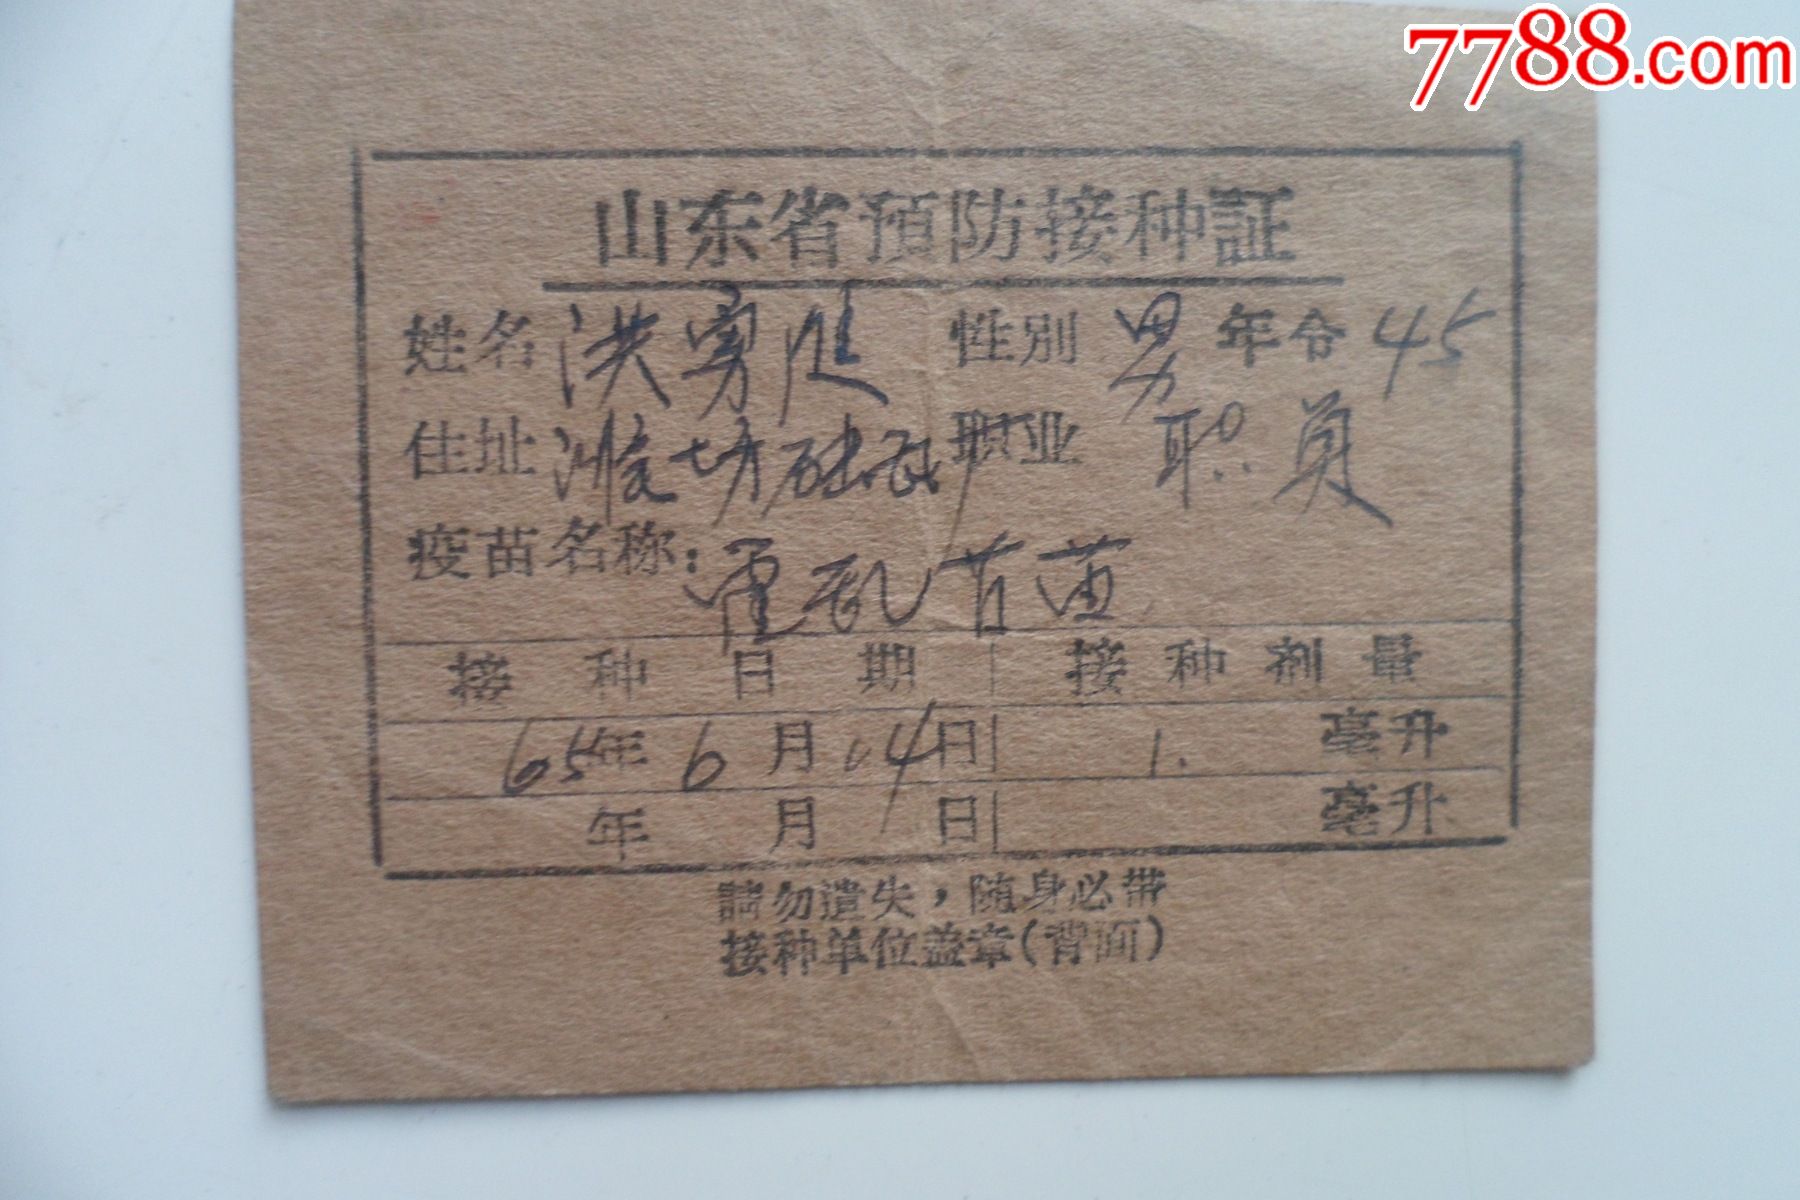 7788.com
山东省预防接种証
姓名 洪 性別 男 年令 45
住址 潍坊 职业 职员
疫苗名称：霍乱苗
接种日期 接种剂量
65年6月14日 1. 毫升
年月日 毫升
請勿遺失，随身必带
接种单位盖章（背面）